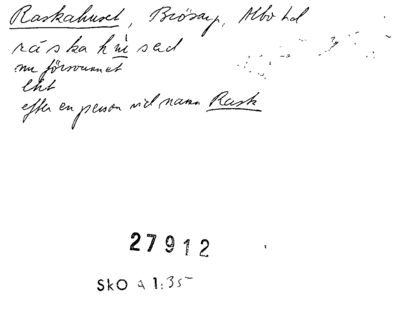 Raskahuset, Brösarp, Albo hd
ráska hùsəd
nu försvunnet
lht
efter en person vid namn Rask
27912
SkO A 1:35